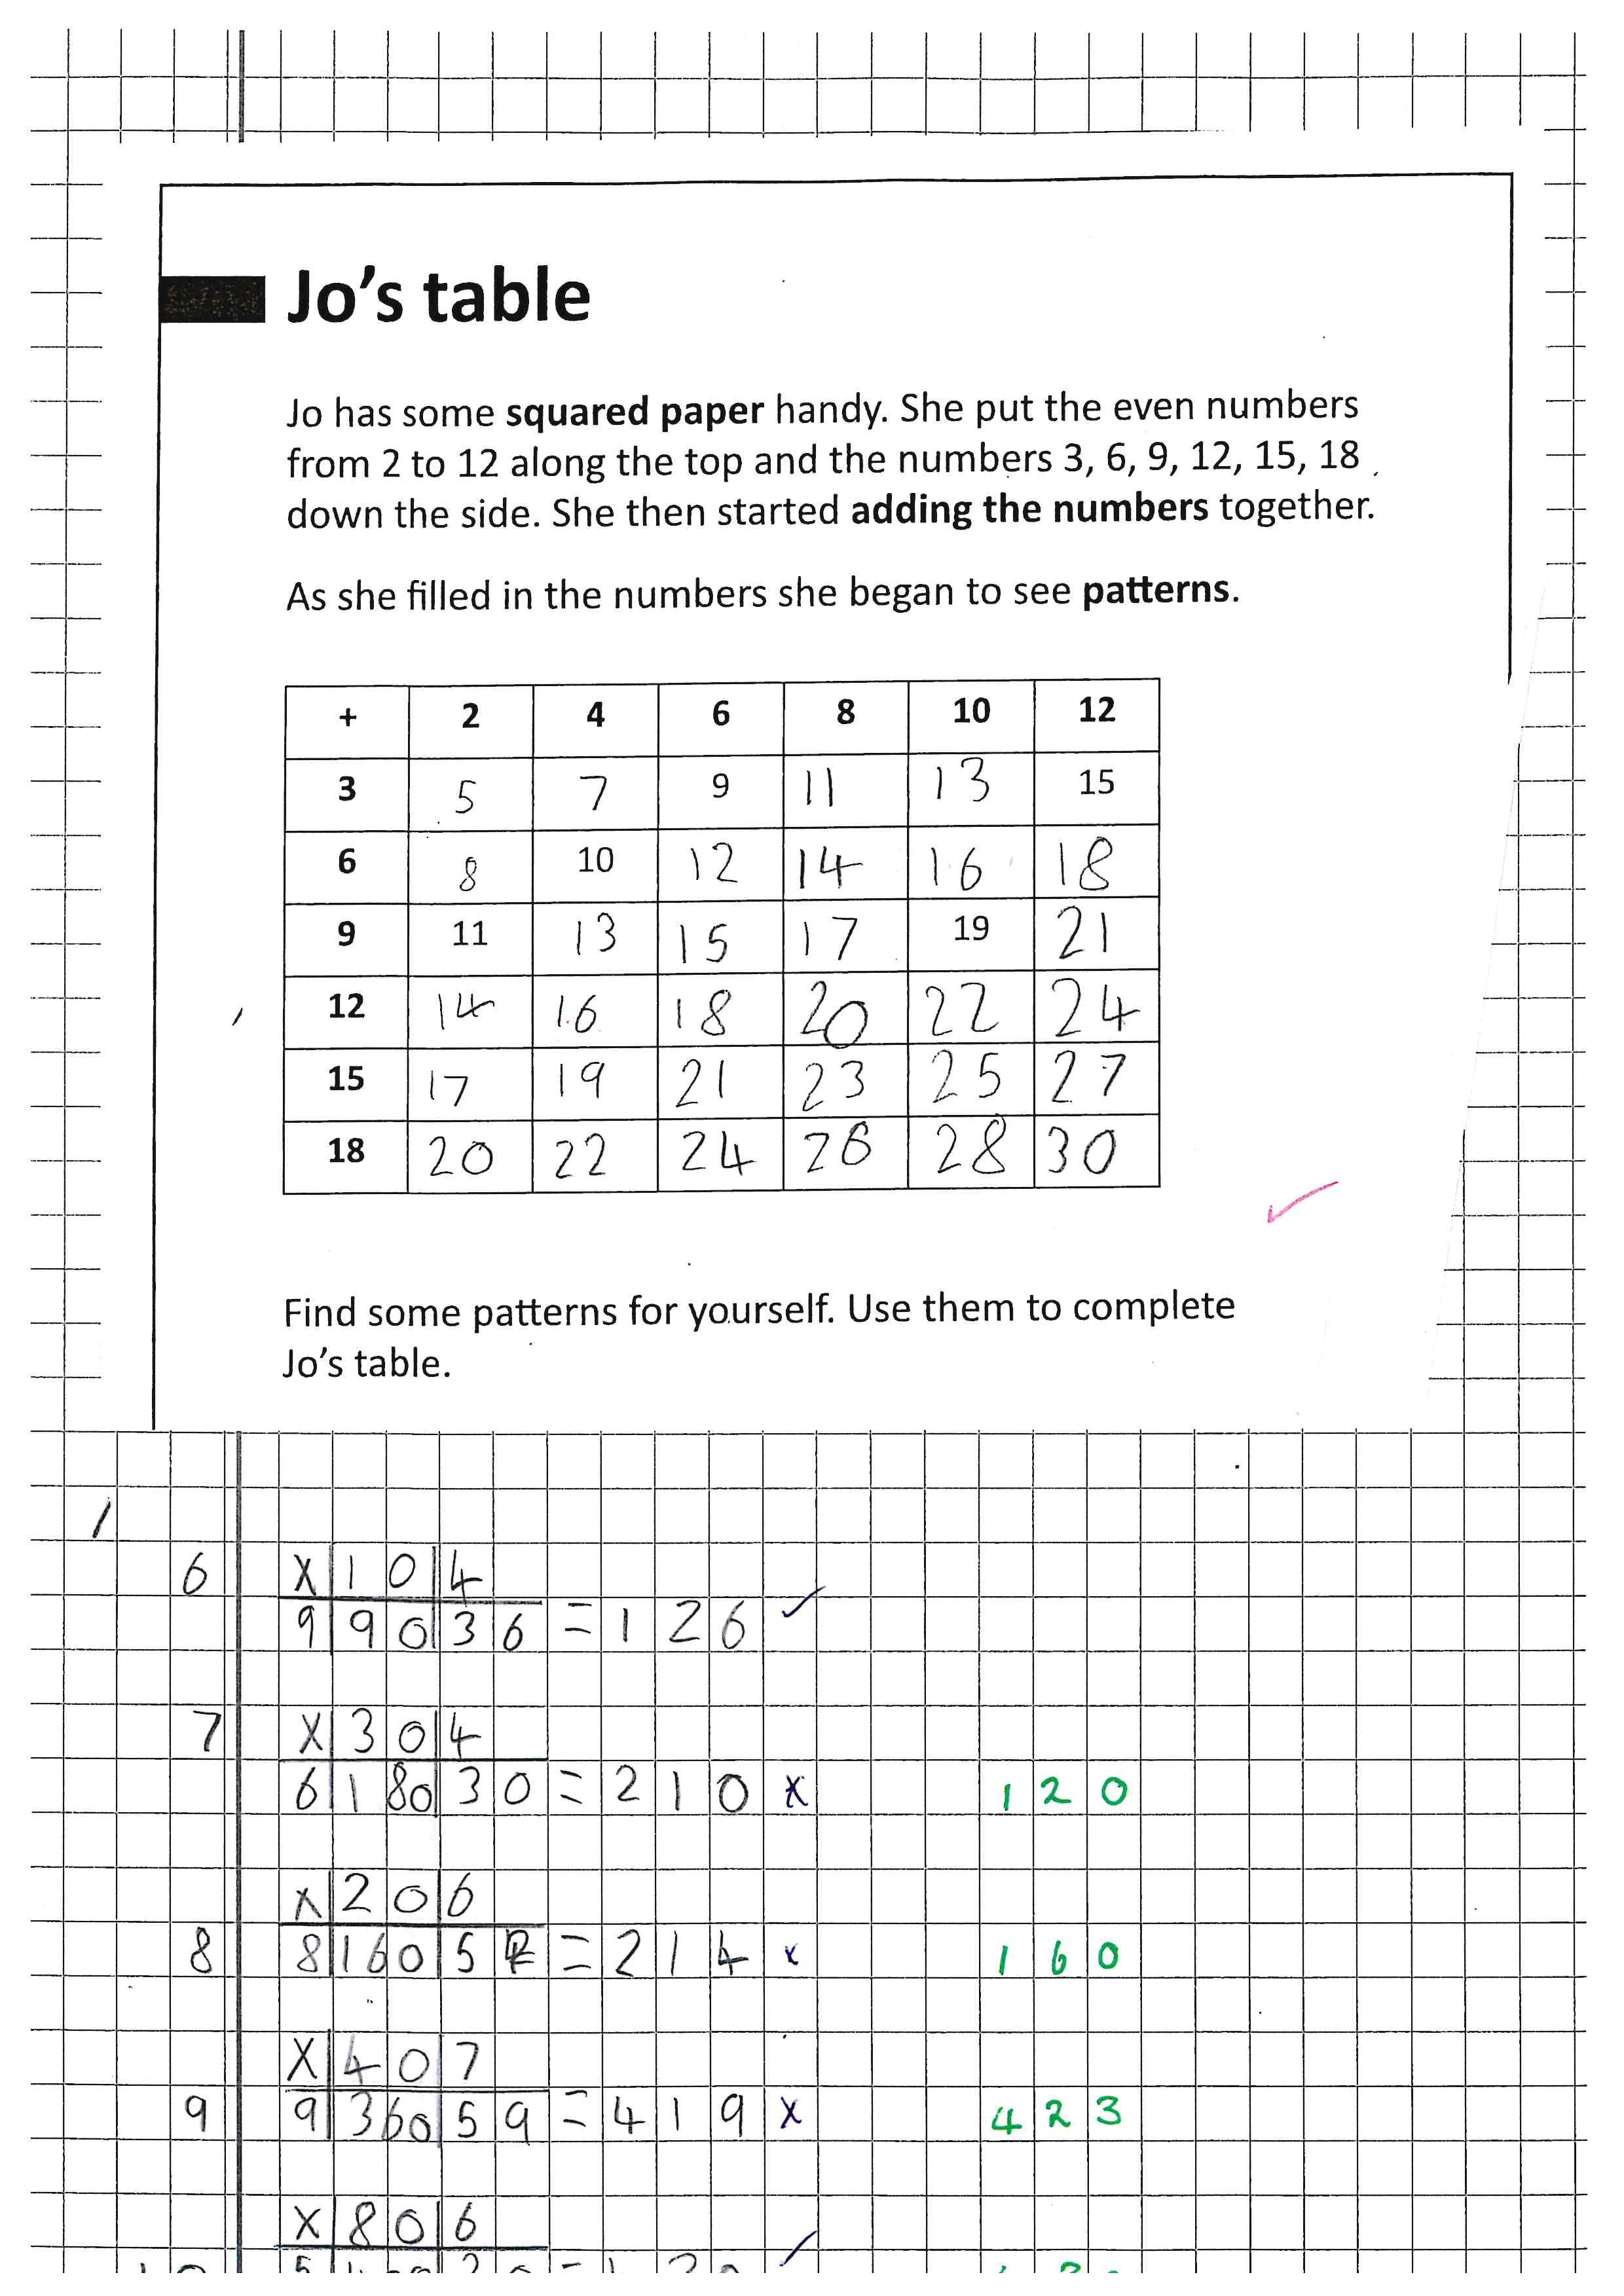 Jo's table
Jo has some squared paper handy. She put the even numbers
from 2 to 12 along the top and the numbers 3, 6, 9, 12, 15, 18
down the side. She then started adding the numbers together.
As she filled in the numbers she began to see patterns.
+ 2 4 6 8 10 12
3 5 7 9 11 13 15
6 8 10 12 14 16 18
9 11 13 15 17 19 21
12 14 16 18 20 22 24
15 17 19 21 23 25 27
18 20 22 24 26 28 30
Find some patterns for yourself. Use them to complete
Jo's table.
6 X 10 4
9 90 36 = 126 ✓
7 X 30 4
6 180 30 = 210 x 120
x 20 6
8 8 160 5 = 214 x 160
X 40 7
9 9 360 59 = 419 x 423
X 80 6
✓